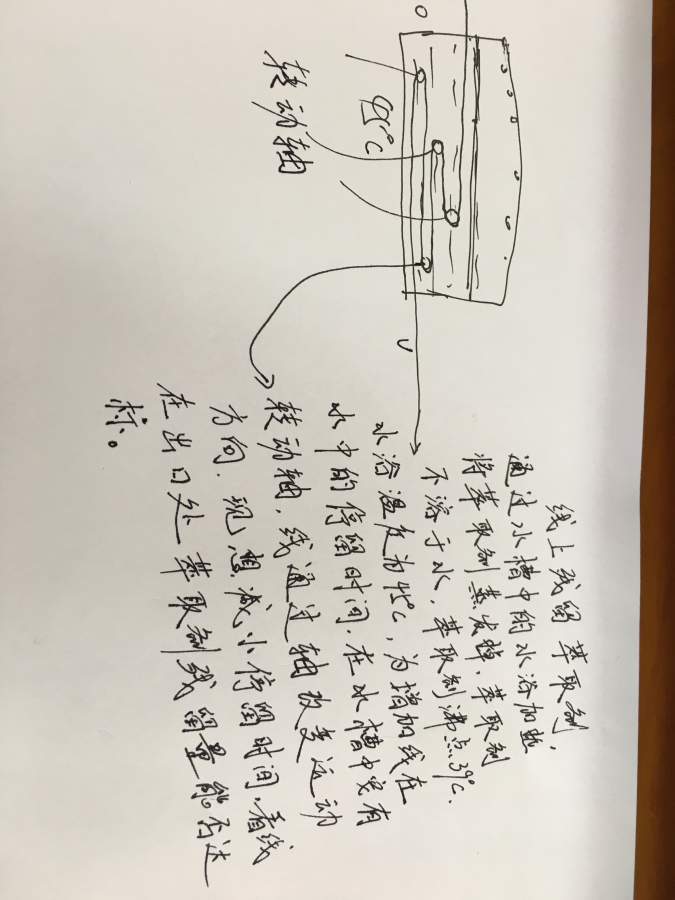 转动轴
45℃
线上残留萃取剂，
通过水槽中的水浴加热
将萃取剂蒸发掉，萃取剂
不溶于水，萃取剂沸点39℃.
水浴温度为45℃，为增加线在
水中的停留时间，在水槽中安有
转动轴，线通过轴改变运动
方向，现想减小停留时间，看线
在出口处萃取剂残留量能否达
标。